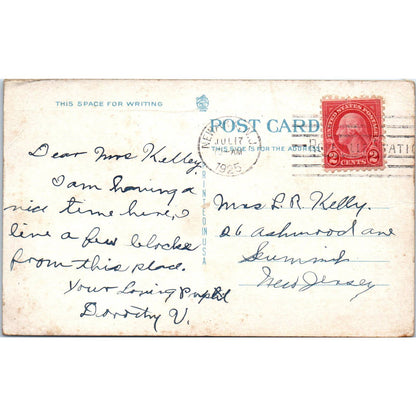 THIS SPACE FOR WRITING
POST CARD
THIS SIDE IS FOR THE ADDRESS
NEW
JUL 17
AM
1925
UNITED STATES POSTAGE
2 CENTS 2
PRINTED IN USA
Dear Mrs Kelley.
I am having a
nice time here, I
live a few blocks
from this place.
Your Loving Pupil
Dorothy V.
Mrs L R Kelly.
26 Ashwood ave
Summit
New Jersey